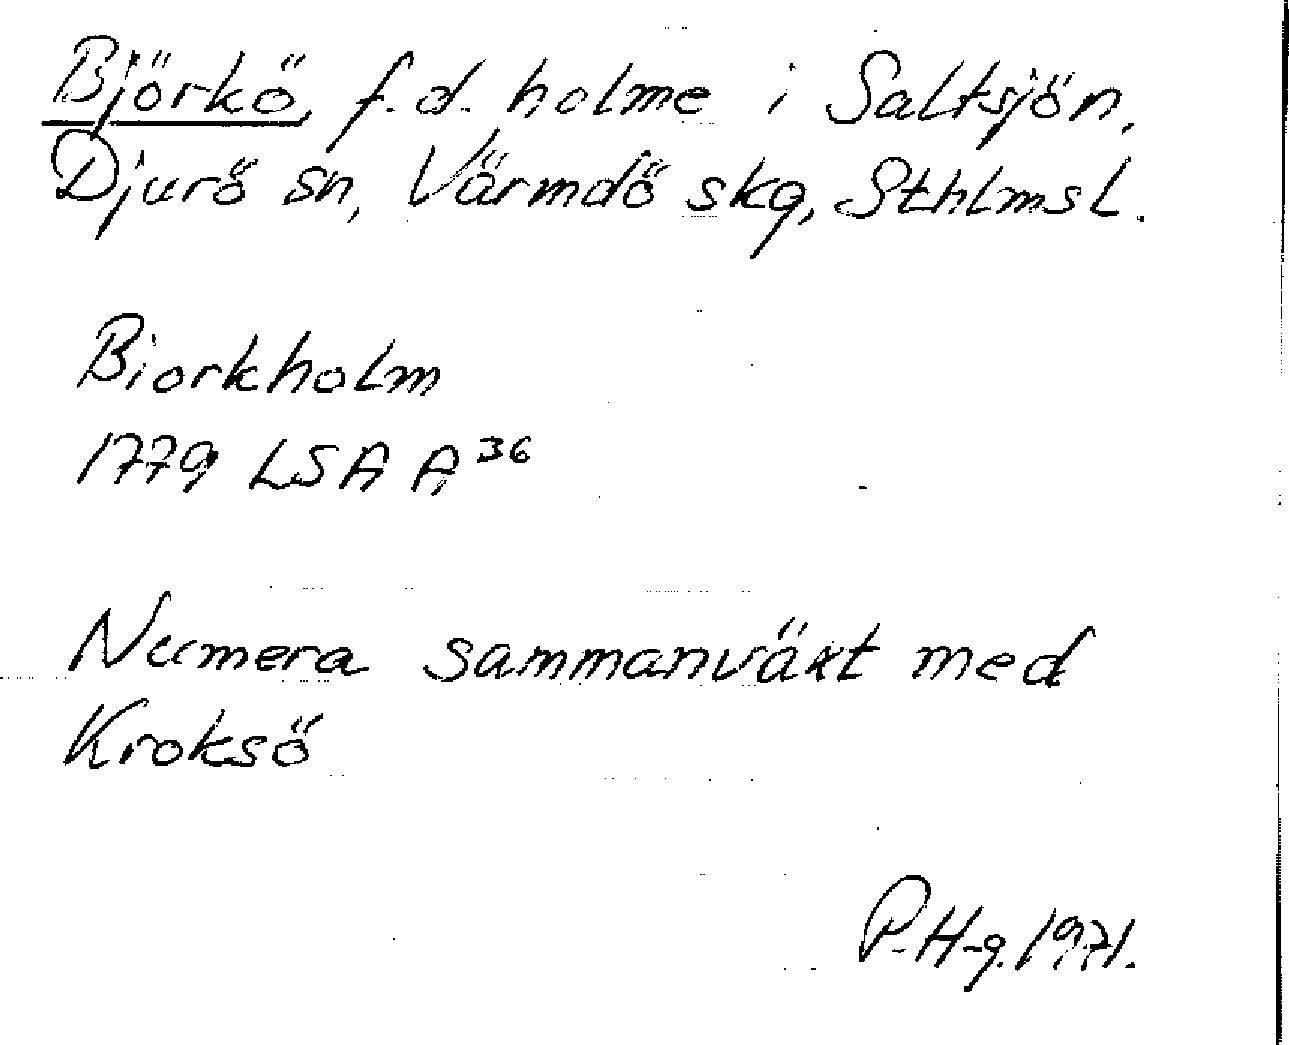 Björkö, f.d. holme i Saltsjön,
Djurö sn, Värmdö skg, Sthlmsl.
Biorkholm
1779 LSA A 36
Numera sammanväxt med
Kroksö
P.H-g. 1971.